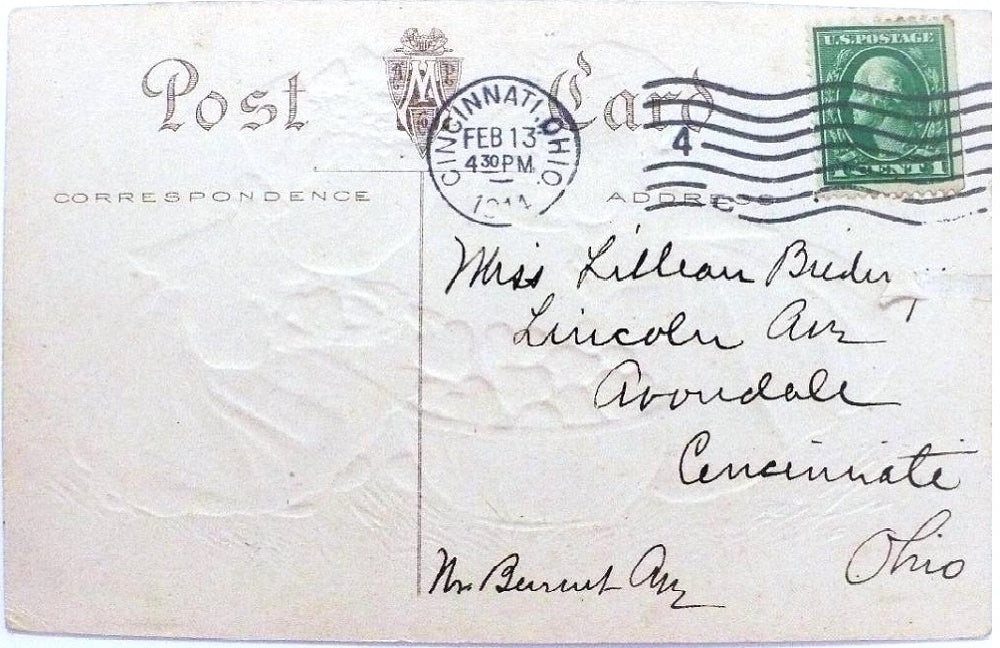 Post Card
A M P Co
U.S. POSTAGE
1 CENT 1
CINCINNATI, OHIO
FEB 13
4 30 PM
4
C
CORRESPONDENCE
ADDRESS
Miss Lillian Bieder
Lincoln Ave
Avondale
Cincinnati
Ohio
Nr. Burnet Ave